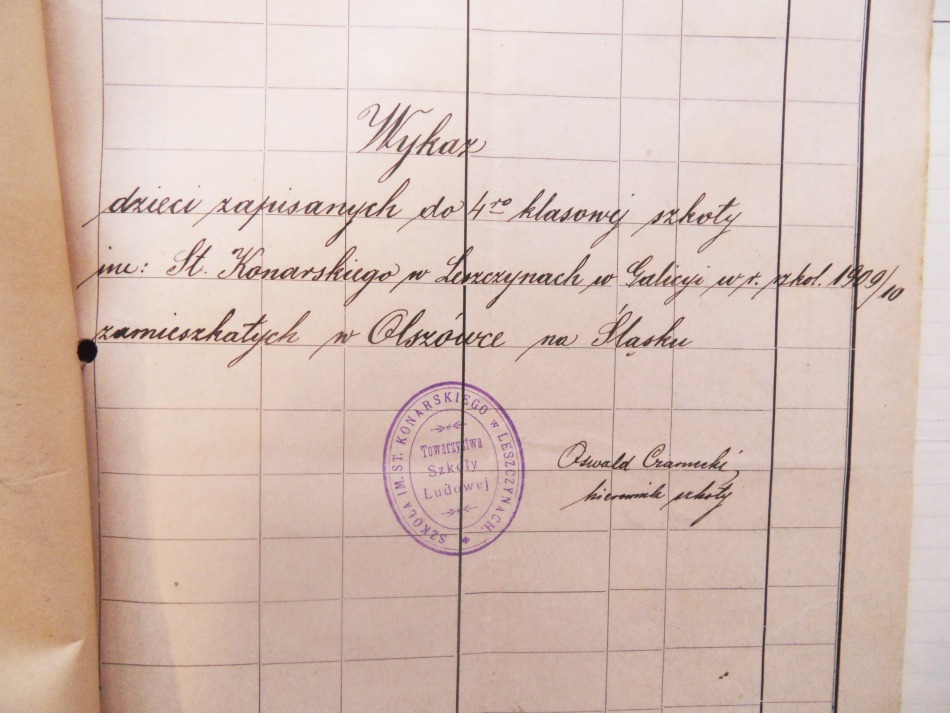 Wykaz
dzieci zapisanych do 4ro klasowej szkoły
im: St. Konarskiego w Leszczynach w Galicyi w r. szkol. 1909/10
zamieszkałych w Olszówce na Śląsku
SZKOŁA IM. ST. KONARSKIEGO w LESZCZYNACH.
Towarzystwa
Szkoły
Ludowej
Oswald Czarnecki
kierownik szkoły